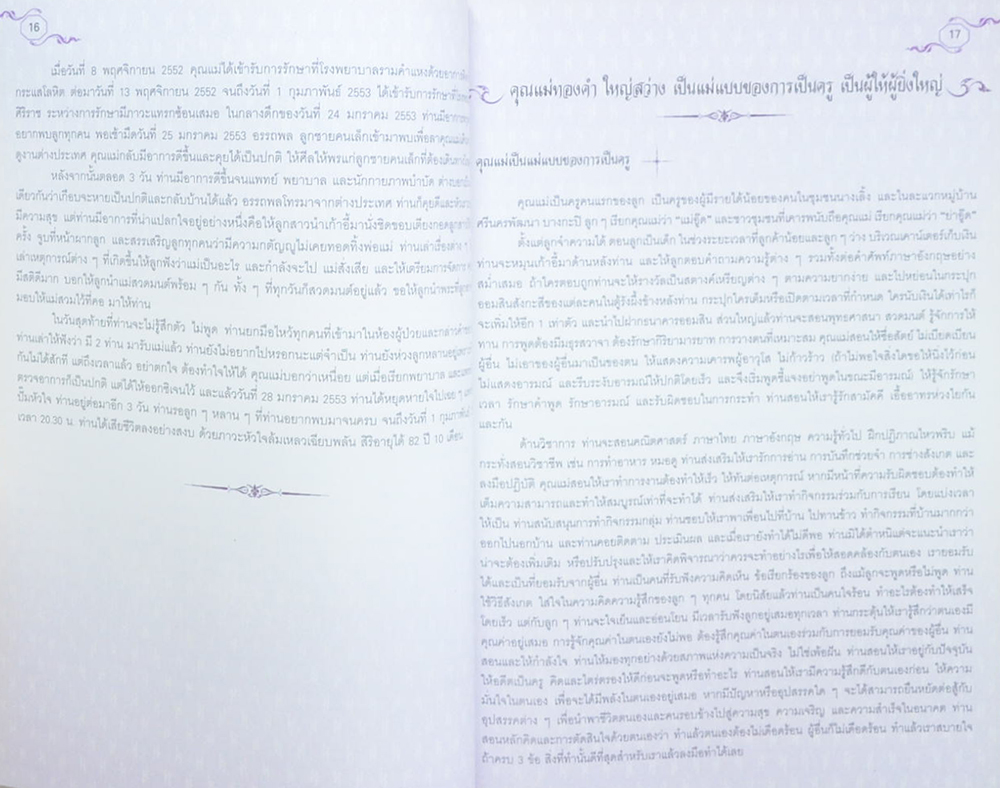 16
เมื่อวันที่ 8 พฤศจิกายน 2552 คุณแม่ได้เข้ารับการรักษาที่โรงพยาบาลรามคำแหงด้วยอาการติด
กระแสโลหิต ต่อมาวันที่ 13 พฤศจิกายน 2552 จนถึงวันที่ 1 กุมภาพันธ์ 2553 ได้เข้ารับการรักษาที่
ศิริราช ระหว่างการรักษามีภาวะแทรกซ้อนเสมอ ในกลางดึกของวันที่ 24 มกราคม 2553 ท่านมีอาการ
อยากพบลูกทุกคน พอเช้ามืดวันที่ 25 มกราคม 2553 อรรถพล ลูกชายคนเล็กเข้ามาพบเพื่อลาคุณแม่
ดูงานต่างประเทศ คุณแม่กลับมีอาการดีขึ้นและคุยได้เป็นปกติ ให้ศีลให้พรแก่ลูกชายคนเล็กที่ต้องเดินทาง
หลังจากนั้นตลอด 3 วัน ท่านมีอาการดีขึ้นจนแพทย์ พยาบาล และนักกายภาพบำบัด ต่างบอก
เดียวกันว่าเกือบจะหายเป็นปกติและกลับบ้านได้แล้ว อรรถพลโทรมาจากต่างประเทศ ท่านก็คุยดีและหัวเราะ
มีความสุข แต่ท่านมีอาการที่น่าแปลกใจอยู่อย่างหนึ่งคือให้ลูกสาวนำเก้าอี้มานั่งชิดขอบเตียงกอดลูก
ครั้ง จูบที่หน้าผากลูก และสรรเสริญลูกทุกคนว่ามีความกตัญญูไม่เคยทอดทิ้งพ่อแม่ ท่านเล่าเรื่องต่าง ๆ
เล่าเหตุการณ์ต่าง ๆ ที่เกิดขึ้นให้ลูกฟังว่าแม่เป็นอะไร และกำลังจะไป แม่สั่งเสีย และให้เตรียมการจัดการ
มีสติดีมาก บอกให้ลูกนำสวดมนต์พร้อม ๆ กัน ทั้ง ๆ ที่ทุกวันก็สวดมนต์อยู่แล้ว ขอให้ลูกนำพระที่
มอบให้แม่สวมไว้ที่คอ มาให้ท่าน
ในวันสุดท้ายที่ท่านจะไม่รู้สึกตัว ไม่พูด ท่านยกมือไหว้ทุกคนที่เข้ามาในห้องผู้ป่วยและกล่าวคำ
ท่านเล่าให้ฟังว่า มี 2 ท่าน มารับแม่แล้ว ท่านยังไม่อยากไปหรอกนะแต่จำเป็น ท่านยังห่วงลูกหลานอยู่
กันไม่ได้สักที แต่ถึงเวลาแล้ว อย่าตกใจ ต้องทำใจให้ได้ คุณแม่บอกว่าเหนื่อย แต่เมื่อเรียกพยาบาล และแพทย์
ตรวจอาการก็เป็นปกติ แต่ได้ให้ออกซิเจนไว้ และแล้ววันที่ 28 มกราคม 2553 ท่านได้หยุดหายใจไปเฉย ๆ
ปั๊มหัวใจ ท่านอยู่ต่อมาอีก 3 วัน ท่านรอลูก ๆ หลาน ๆ ที่ท่านอยากพบมาจนครบ จนถึงวันที่ 1 กุมภาพันธ์
เวลา 20.30 น. ท่านได้เสียชีวิตลงอย่างสงบ ด้วยภาวะหัวใจล้มเหลวเฉียบพลัน สิริอายุได้ 82 ปี 10 เดือน
17
คุณแม่ทองคำ ใหญ่สว่าง เป็นแม่แบบของการเป็นครู เป็นผู้ให้ผู้ยิ่งใหญ่
คุณแม่เป็นแม่แบบของการเป็นครู
คุณแม่เป็นครูคนแรกของลูก เป็นครูของผู้มีรายได้น้อยของคนในชุมชนนางเลิ้ง และในละแวกหมู่บ้าน
ศรีนครพัฒนา บางกะปิ ลูก ๆ เรียกคุณแม่ว่า “แม่อู๊ด” และชาวชุมชนที่เคารพนับถือคุณแม่ เรียกคุณแม่ว่า “ย่าอู๊ด”
ตั้งแต่ลูกจำความได้ ตอนลูกเป็นเด็ก ในช่วงระยะเวลาที่ลูกค้าน้อยและลูก ๆ ว่าง บริเวณเคาน์เตอร์เก็บเงิน
ท่านจะหมุนเก้าอี้มาด้านหลังท่าน และให้ลูกตอบคำถามความรู้ต่าง ๆ รวมทั้งต่อคำศัพท์ภาษาอังกฤษอย่าง
สม่ำเสมอ ถ้าใครตอบถูกท่านจะให้รางวัลเป็นสตางค์เหรียญต่าง ๆ ตามความยากง่าย และไปหย่อนในกระปุก
ออมสินสังกะสีของแต่ละคนในตู้รังผึ้งข้างหลังท่าน กระปุกใครเต็มหรือเปิดตามเวลาที่กำหนด ใครนับเงินได้เท่าไรก็
จะเพิ่มให้อีก 1 เท่าตัว และนำไปฝากธนาคารออมสิน ส่วนใหญ่แล้วท่านจะสอนพุทธศาสนา สวดมนต์ รู้จักการให้
ทาน การพูดต้องมีมธุรสวาจา ต้องรักษากิริยามารยาท การวางตนที่เหมาะสม คุณแม่สอนให้ซื่อสัตย์ ไม่เบียดเบียน
ผู้อื่น ไม่เอาของผู้อื่นมาเป็นของตน ให้แสดงความเคารพผู้อาวุโส ไม่ก้าวร้าว (ถ้าไม่พอใจสิ่งใดขอให้นิ่งไว้ก่อน
ไม่แสดงอารมณ์ และรีบระงับอารมณ์ให้ปกติโดยเร็ว และจึงเริ่มพูดชี้แจงอย่าพูดในขณะมีอารมณ์) ให้รู้จักรักษา
เวลา รักษาคำพูด รักษาอารมณ์ และรับผิดชอบในการกระทำ ท่านสอนให้เรารู้รักสามัคคี เอื้ออาทรห่วงใยกัน
และกัน
ด้านวิชาการ ท่านจะสอนคณิตศาสตร์ ภาษาไทย ภาษาอังกฤษ ความรู้ทั่วไป ฝึกปฏิภาณไหวพริบ แม้
กระทั่งสอนวิชาชีพ เช่น การทำอาหาร หมอดู ท่านส่งเสริมให้เรารักการอ่าน การบันทึกช่วยจำ การช่างสังเกต และ
ลงมือปฏิบัติ คุณแม่สอนให้เราทำการงานต้องทำให้เร็ว ให้ทันต่อเหตุการณ์ หากมีหน้าที่ความรับผิดชอบต้องทำให้
เต็มความสามารถและทำให้สมบูรณ์เท่าที่จะทำได้ ท่านส่งเสริมให้เราทำกิจกรรมร่วมกับการเรียน โดยแบ่งเวลา
ให้เป็น ท่านสนับสนุนการทำกิจกรรมกลุ่ม ท่านชอบให้เราพาเพื่อนไปที่บ้าน ไปทานข้าว ทำกิจกรรมที่บ้านมากกว่า
ออกไปนอกบ้าน และท่านคอยติดตาม ประเมินผล และเมื่อเรายังทำได้ไม่ดีพอ ท่านมิได้ตำหนิแต่จะแนะนำเราว่า
น่าจะต้องเพิ่มเติม หรือปรับปรุงและให้เราคิดพิจารณาว่าควรจะทำอย่างไรเพื่อให้สอดคล้องกับตนเอง เรายอมรับ
ได้และเป็นที่ยอมรับจากผู้อื่น ท่านเป็นคนที่รับฟังความคิดเห็น ข้อเรียกร้องของลูก ถึงแม้ลูกจะพูดหรือไม่พูด ท่าน
ใช้วิธีสังเกต ใส่ใจในความคิดความรู้สึกของลูก ๆ ทุกคน โดยนิสัยแล้วท่านเป็นคนใจร้อน ทำอะไรต้องทำให้เสร็จ
โดยเร็ว แต่กับลูก ๆ ท่านจะใจเย็นและอ่อนโยน มีเวลารับฟังลูกอยู่เสมอทุกเวลา ท่านกระตุ้นให้เรารู้สึกว่าตนเองมี
คุณค่าอยู่เสมอ การรู้จักคุณค่าในตนเองยังไม่พอ ต้องรู้สึกคุณค่าในตนเองร่วมกับการยอมรับคุณค่าของผู้อื่น ท่าน
สอนและให้กำลังใจ ท่านให้มองทุกอย่างด้วยสภาพแห่งความเป็นจริง ไม่ใช่เพ้อฝัน ท่านสอนให้เราอยู่กับปัจจุบัน
ให้อดีตเป็นครู คิดและไตร่ตรองให้ดีก่อนจะพูดหรือทำอะไร ท่านสอนให้เรามีความรู้สึกดีกับตนเองก่อน ให้ความ
มั่นใจในตนเอง เพื่อจะได้มีพลังในตนเองอยู่เสมอ หากมีปัญหาหรืออุปสรรคใด ๆ จะได้สามารถยืนหยัดต่อสู้กับ
อุปสรรคต่าง ๆ เพื่อนำพาชีวิตตนเองและคนรอบข้างไปสู่ความสุข ความเจริญ และความสำเร็จในอนาคต ท่าน
สอนหลักคิดและการตัดสินใจด้วยตนเองว่า ทำแล้วตนเองต้องไม่เดือดร้อน ผู้อื่นก็ไม่เดือดร้อน ทำแล้วเราสบายใจ
ถ้าครบ 3 ข้อ สิ่งที่ทำนั้นดีที่สุดสำหรับเราแล้วลงมือทำได้เลย